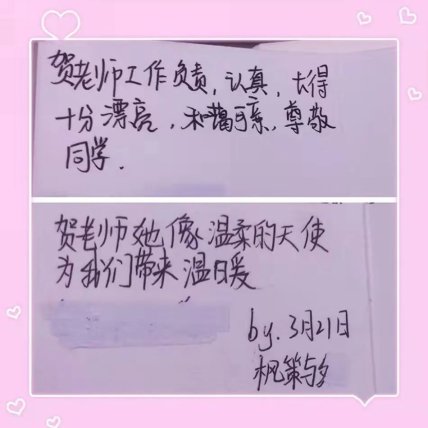 贺老师工作负责,认真,长得
十分漂亮,和蔼可亲,尊敬
同学.
贺老师她像温柔的天使
为我们带来温暖
by. 3月21日